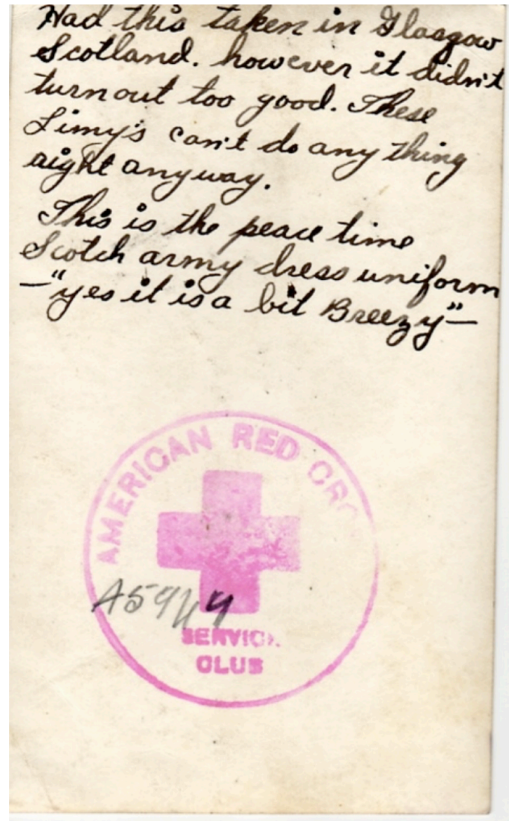 Had this taken in Glasgow
Scotland. however it didn't
turn out too good. These
Limy's can't do any thing
right anyway.
This is the peace time
Scotch army dress uniform
—"yes it is a bit Breezy"—
AMERICAN RED CRO
SERVICE
CLUB